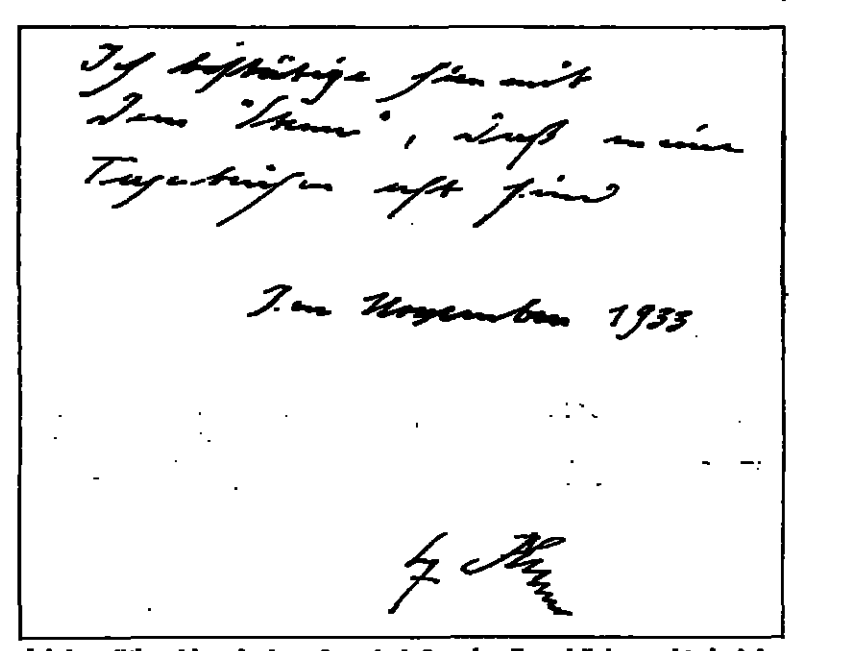 Ich bestätige hier mit
dem "Stern", daß meine
Tagebücher echt sind
Im November 1933